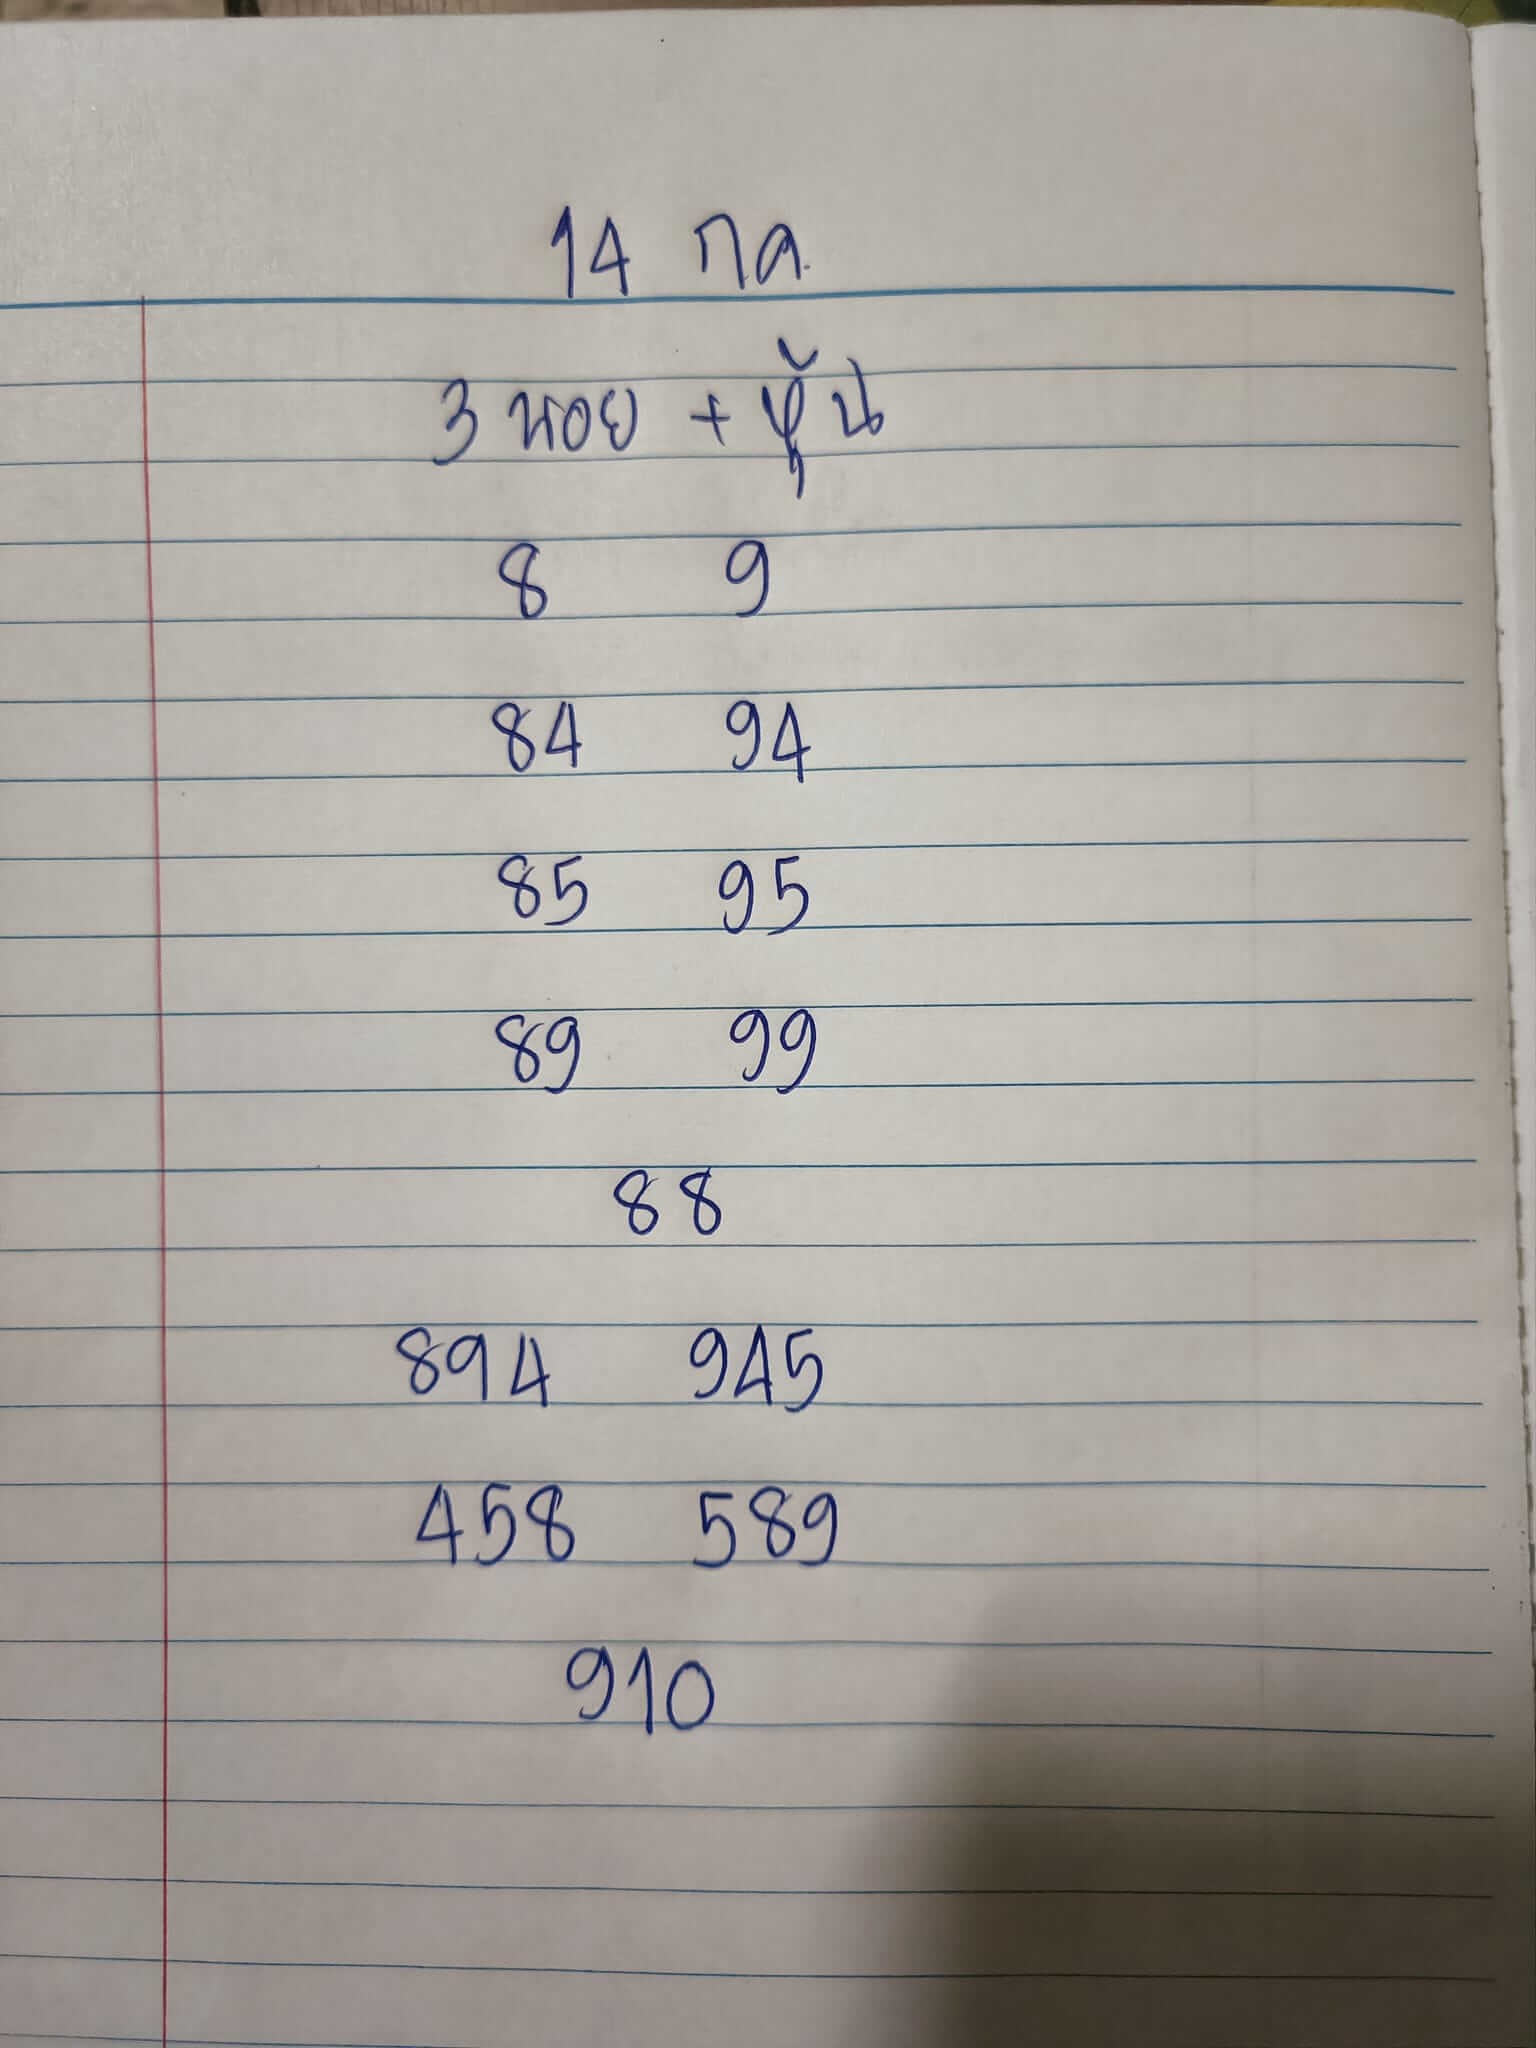 14 กค.
3 นอย + หุ้น
8 9
84 94
85 95
89 99
88
894 945
458 589
910